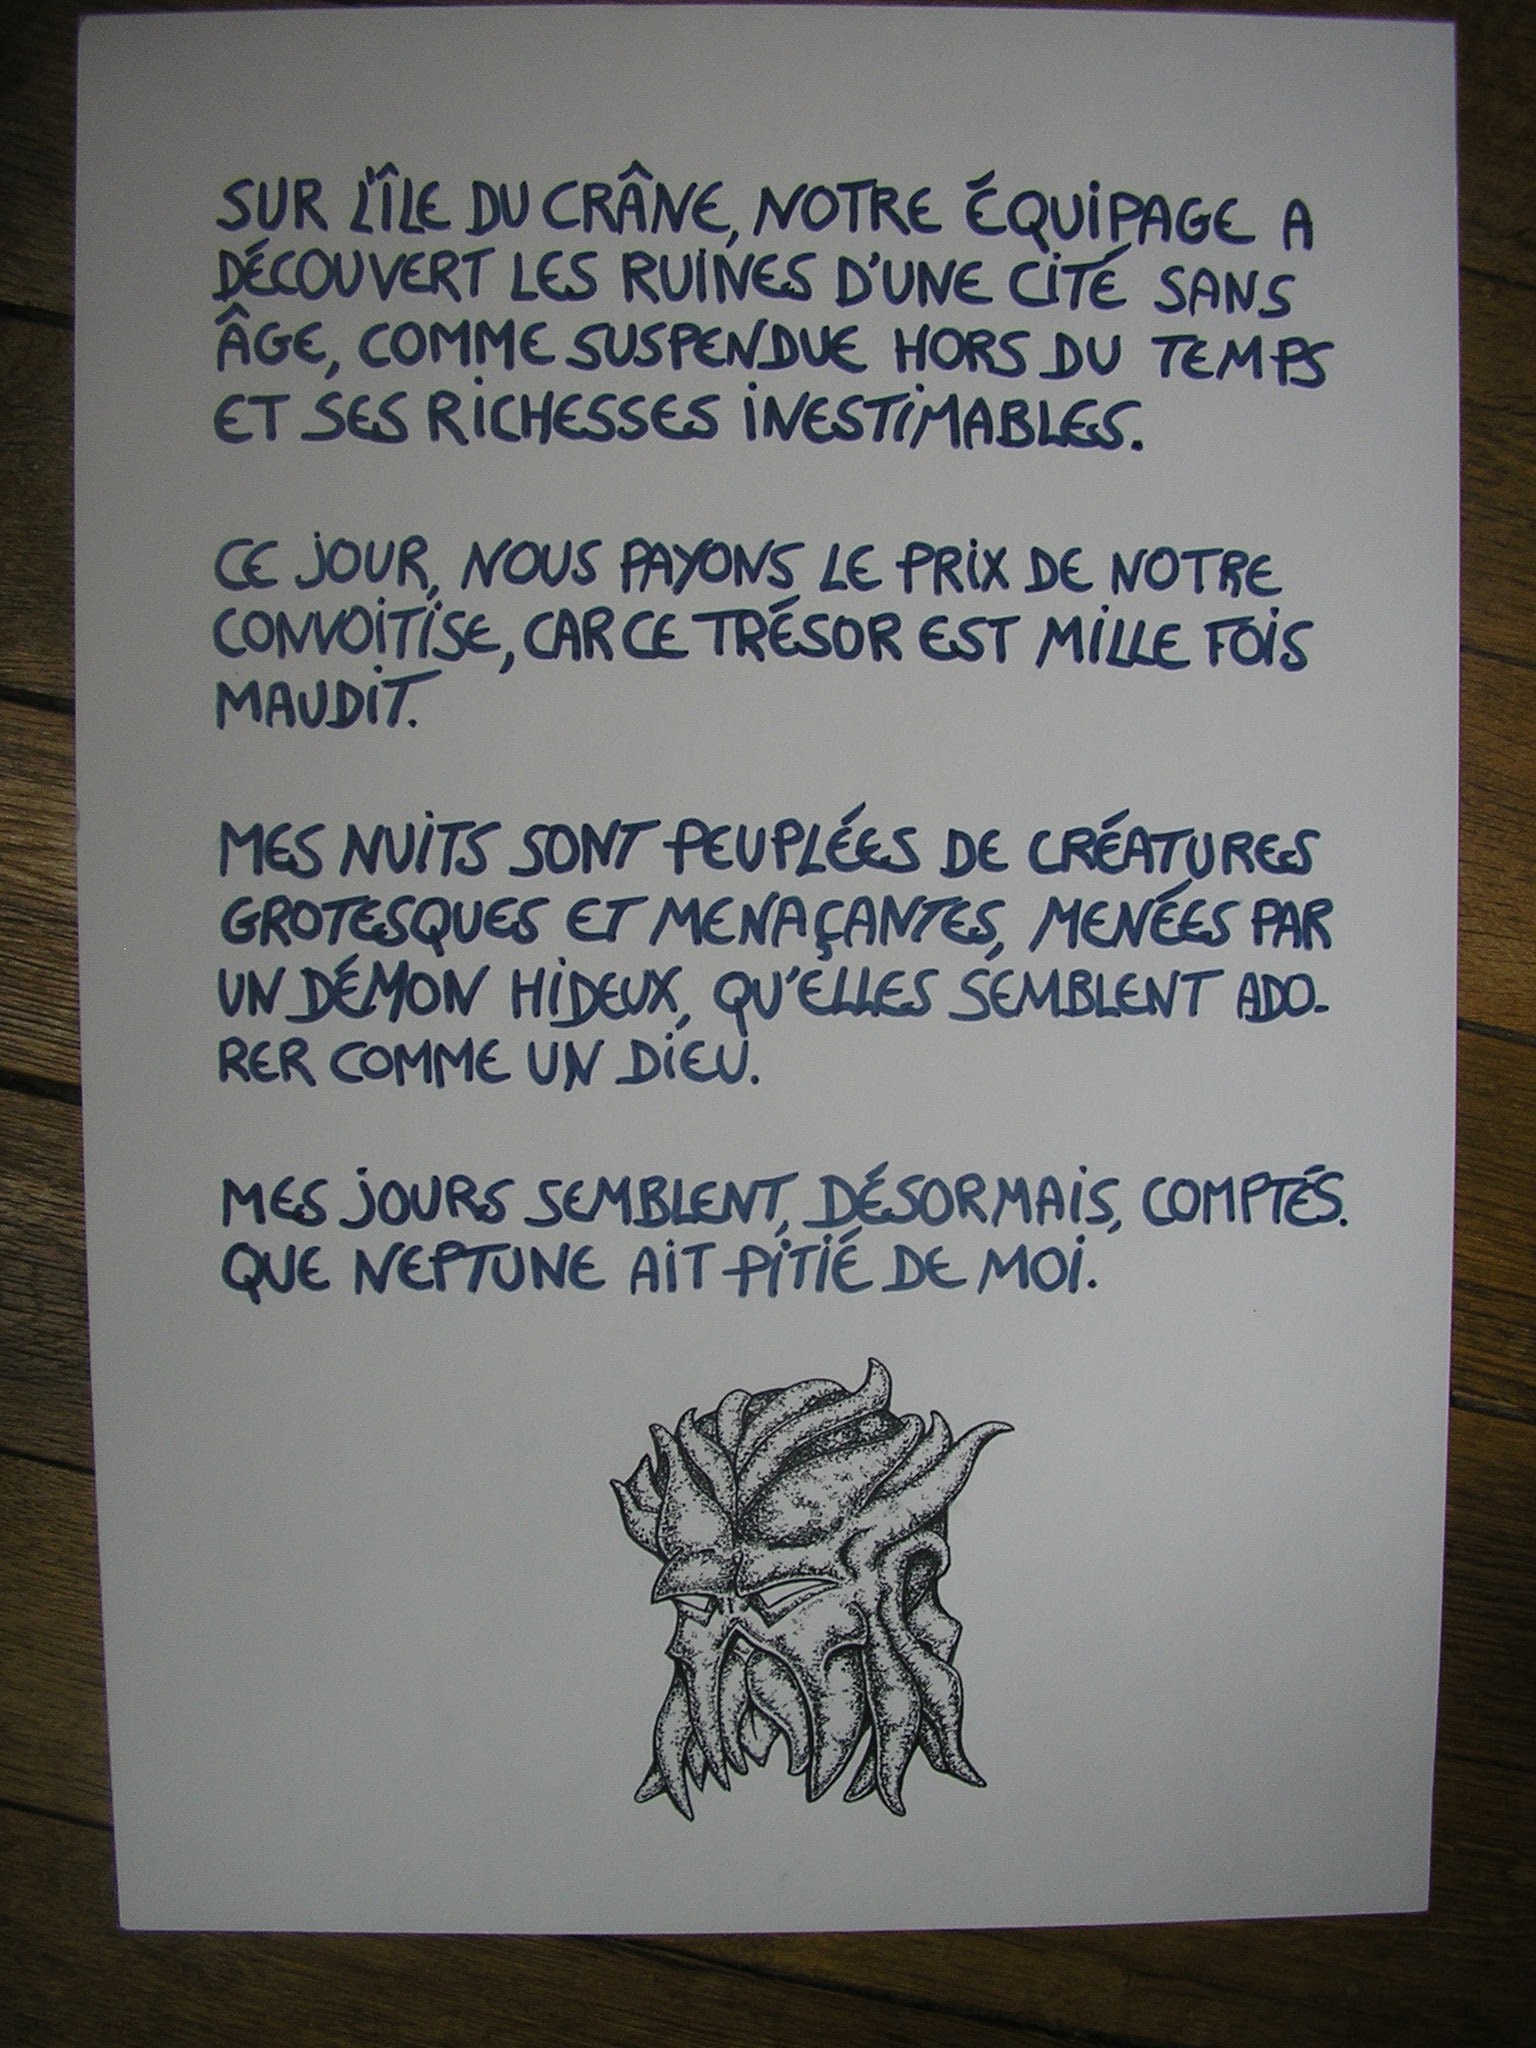 SUR L'ÎLE DU CRÂNE, NOTRE ÉQUIPAGE A
DÉCOUVERT LES RUINES D'UNE CITÉ SANS
ÂGE, COMME SUSPENDUE HORS DU TEMPS
ET SES RICHESSES INESTIMABLES.
CE JOUR, NOUS PAYONS LE PRIX DE NOTRE
CONVOITISE, CAR CE TRÉSOR EST MILLE FOIS
MAUDIT.
MES NUITS SONT PEUPLÉES DE CRÉATURES
GROTESQUES ET MENAÇANTES, MENÉES PAR
UN DÉMON HIDEUX, QU'ELLES SEMBLENT ADO-
RER COMME UN DIEU.
MES JOURS SEMBLENT, DÉSORMAIS, COMPTÉS.
QUE NEPTUNE AIT PITIÉ DE MOI.